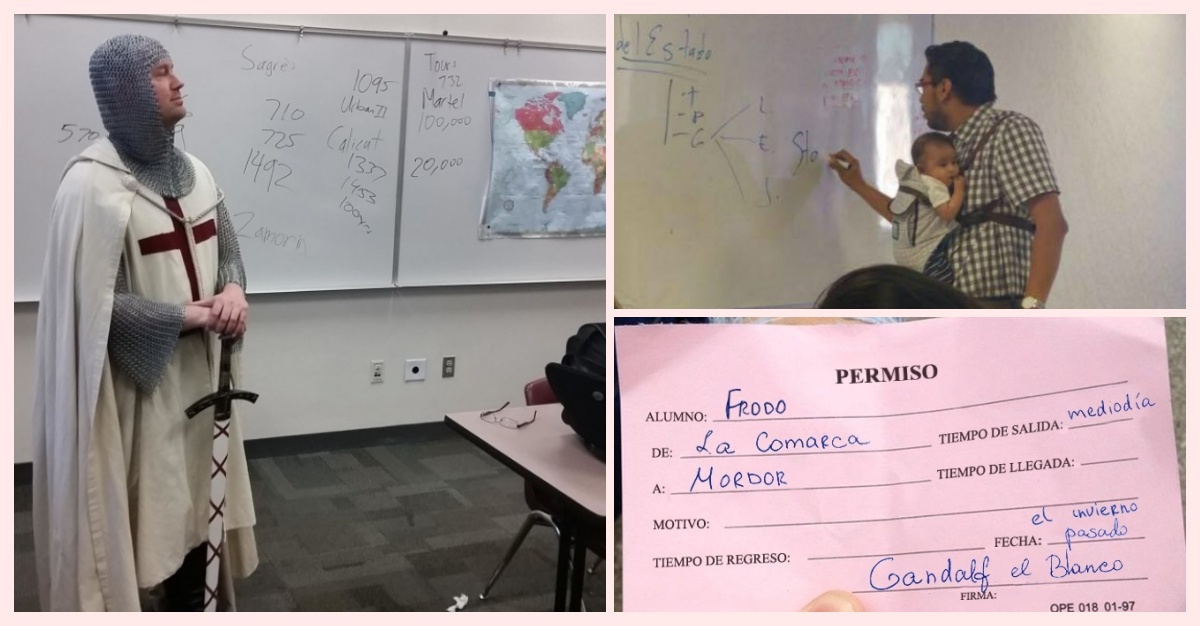 Sagres
1095
Urban II
710
725
1492
Calicut
1337
1453
100yrs
Zamorin
570
Tours
732
Martel
100,000
20,000
del Estado
PERMISO
ALUMNO: FRODO
DE: La Comarca
TIEMPO DE SALIDA: mediodía
A: MORDOR
TIEMPO DE LLEGADA:
MOTIVO:
el invierno
FECHA: pasado
TIEMPO DE REGRESO:
Gandalf el Blanco
FIRMA:
OPE 018 01-97